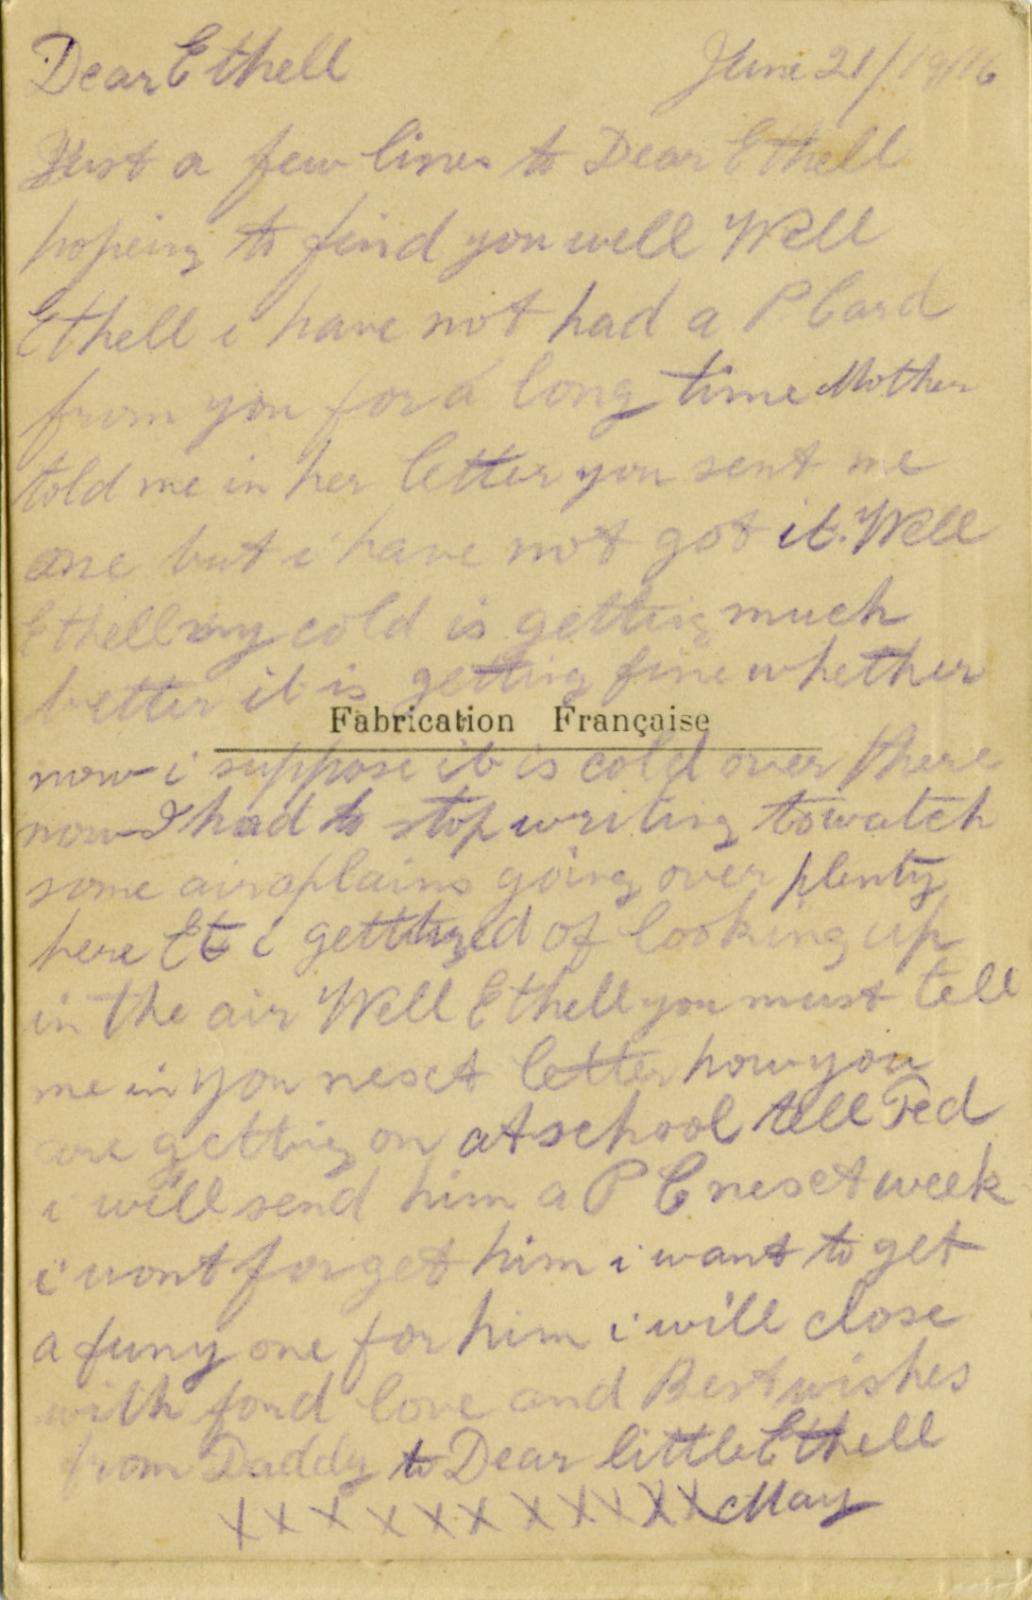 Dear Ethell June 21/1916
Just a few lines to Dear Ethell
hopeing to find you well Well
Ethell i have not had a P Card
from you for a long time Mother
told me in her letter you sent me
one but i have not got it. Well
Ethell my cold is getting much
better it is getting fine whether
Fabrication Française
now i suppose it is cold over there
now I had to stop writing to watch
some airaplains going over plenty
here Et i get tired of looking up
in the air Well Ethell you must tell
me in you nesct letter how you
are getting on at school tell Ted
i will send him a P C nesct week
i wont forget him i want to get
a funy one for him i will close
with fond love and Best wishes
from Daddy to Dear little Ethell
x x x x x x x x x x x May